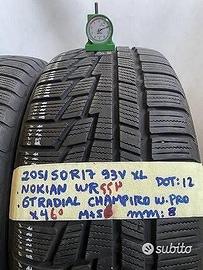 205/50R17 93V XL DOT:12
NOKIAN WR
GTRADIAL CHAMPIRO W.PRO
X4 M+S mm:8
subito